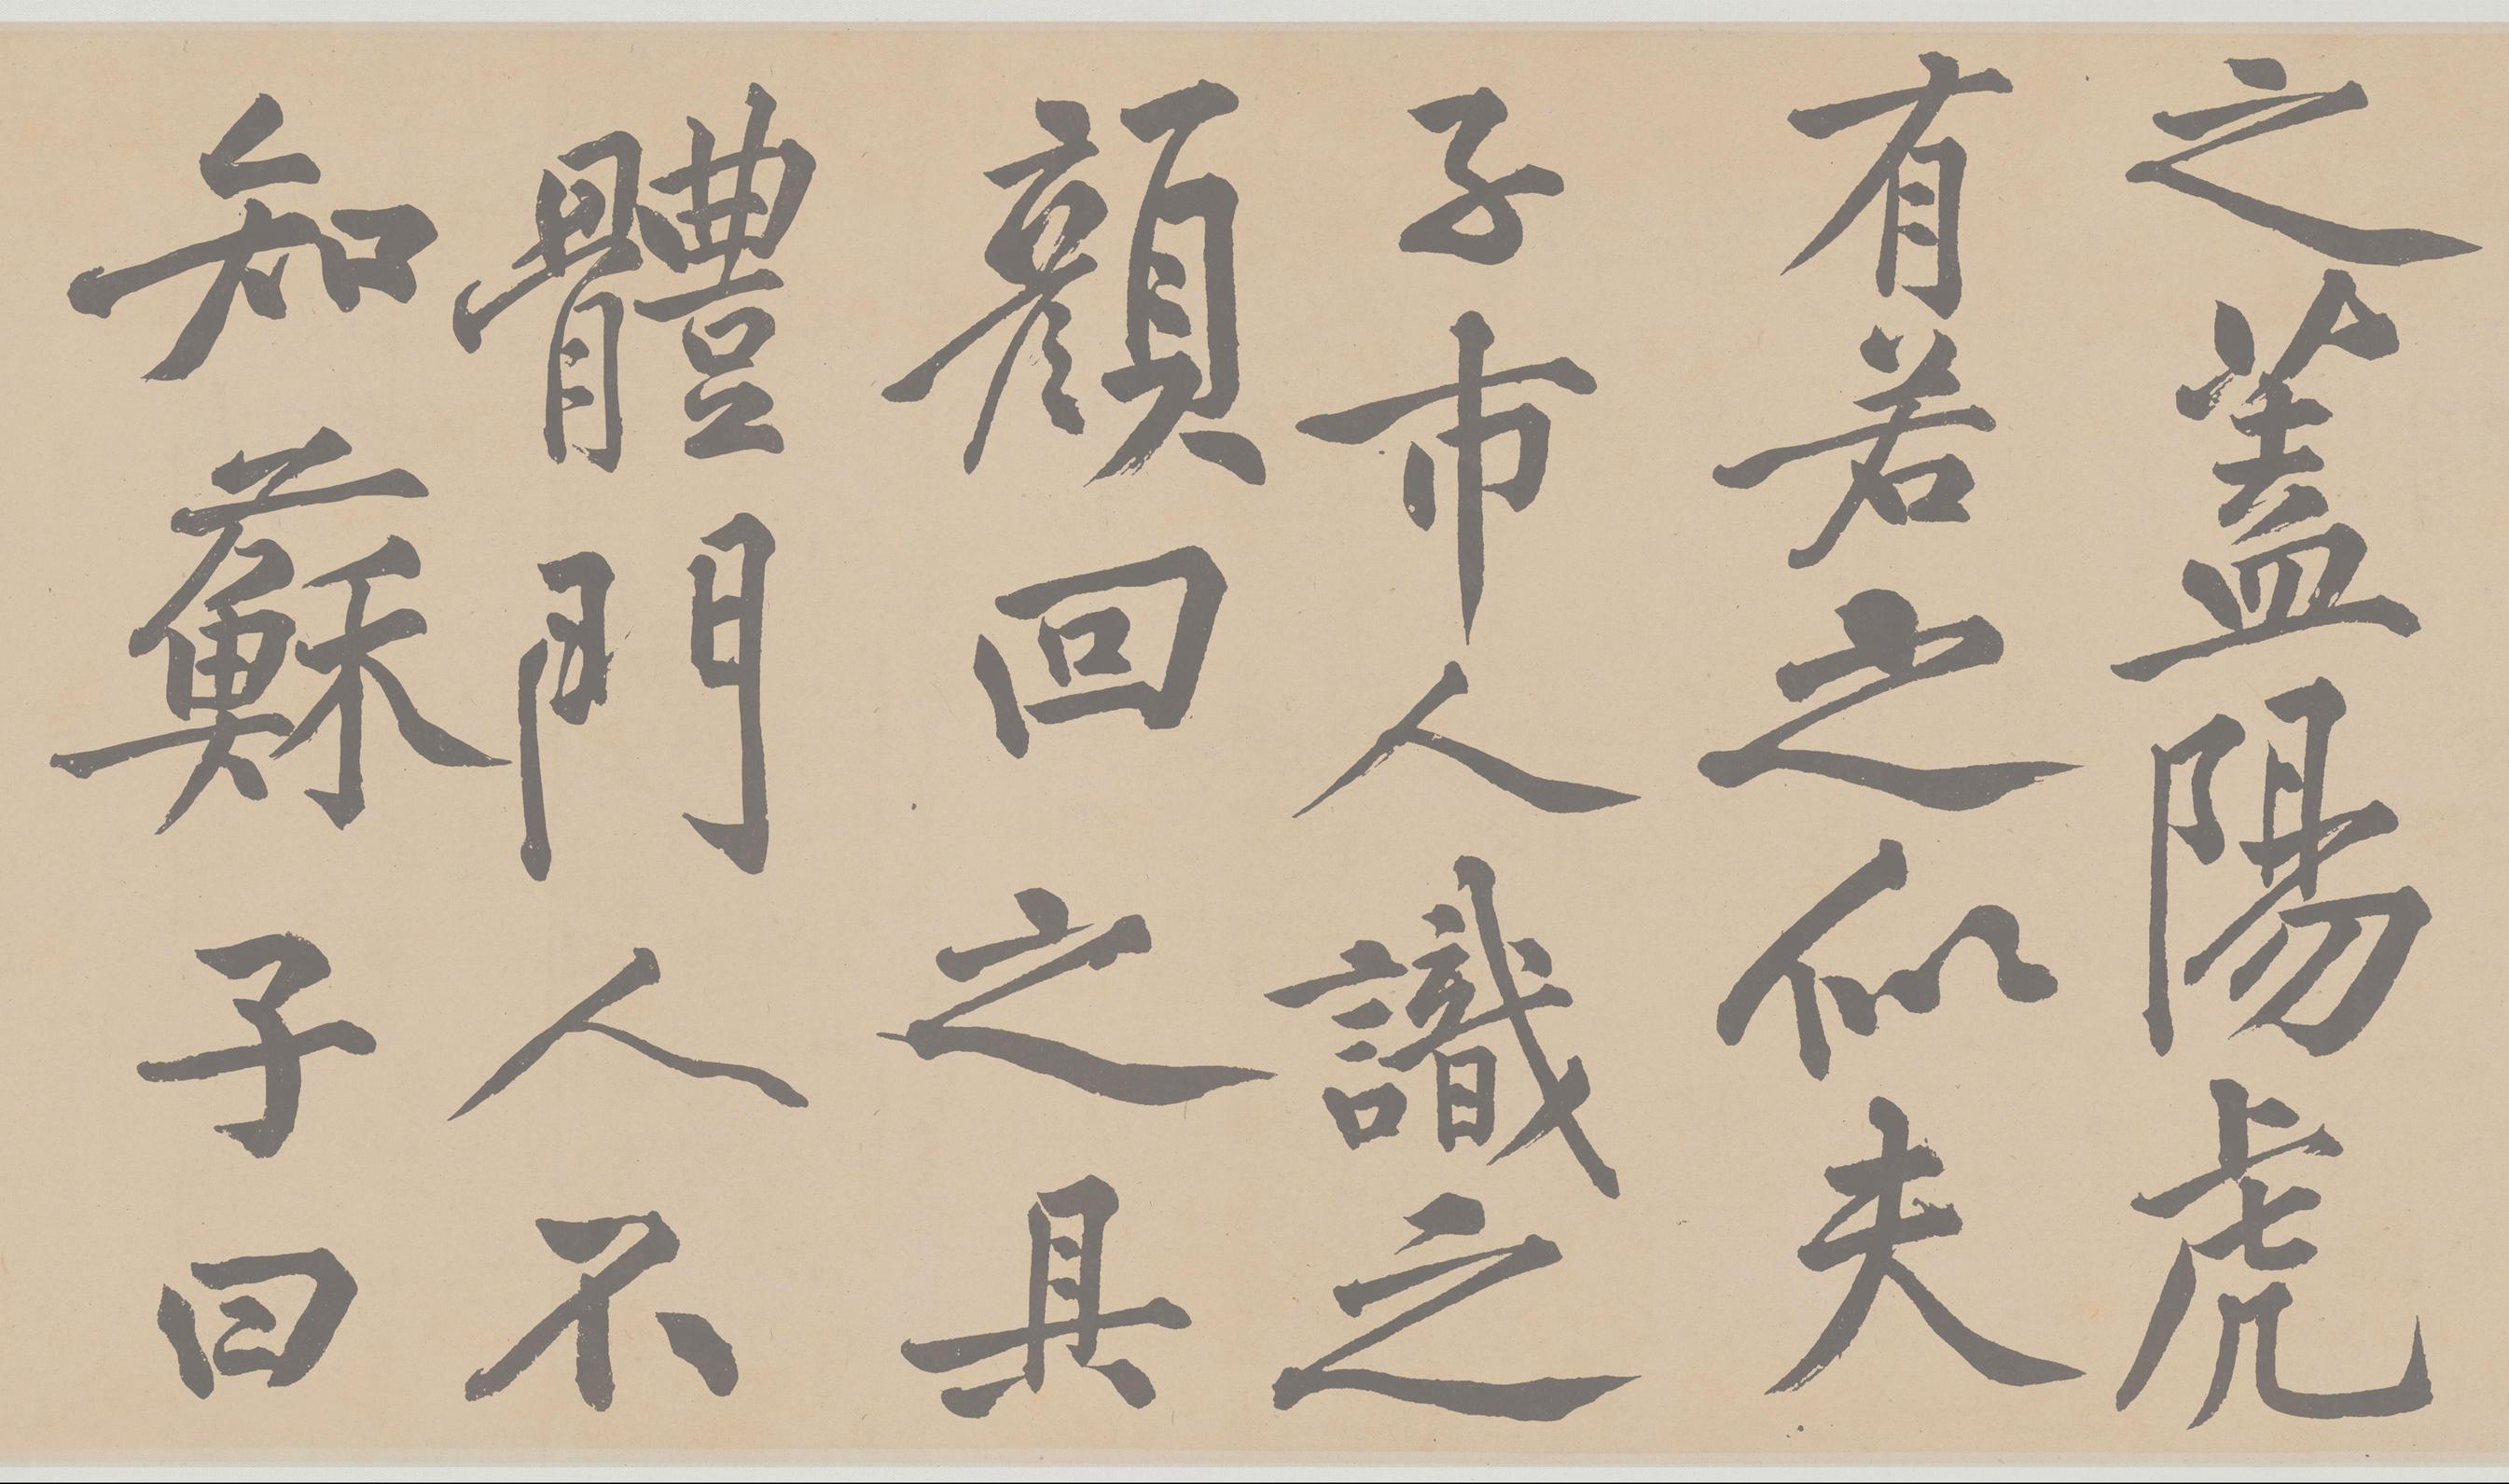 之蓋陽虎
有若之似夫
子市人識之
顏回之具
體門人不
知蘇子曰